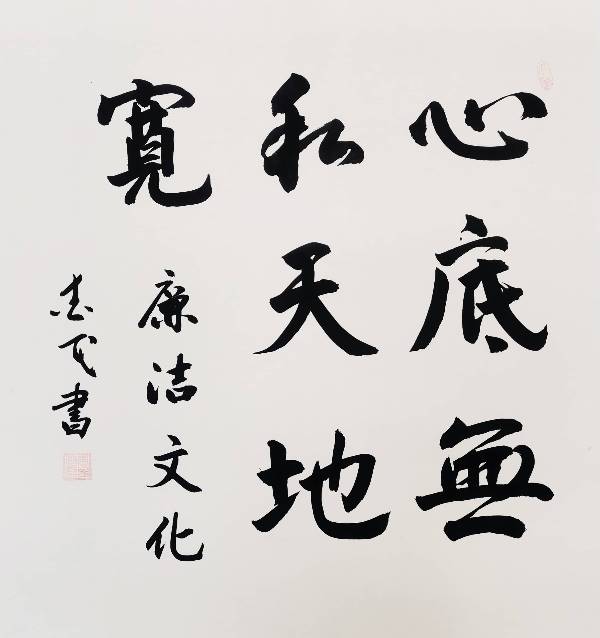 心底無
私天地
寬
廉洁文化
志民書